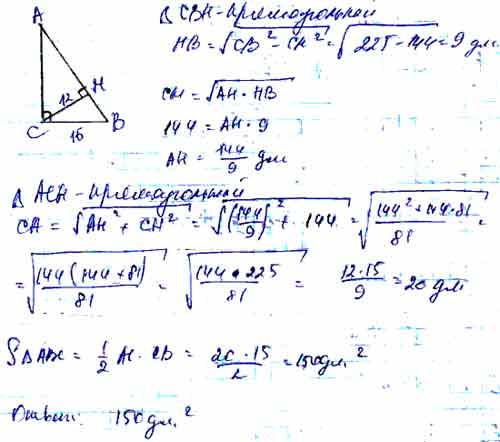 A
H
12
C
15
B
Δ CBH - прямоугольный
HB = √CB² - CH² = √225 - 144 = 9 дм
CH = √AH · HB
144 = AH · 9
AH = 144/9 дм
Δ ACH - прямоугольный
CA = √AH² + CH² = √(144/9)² + 144 = √144² + 144·81/81 =
= √144(144 + 81)/81 = √144 · 225/81 = 12·15/9 = 20 дм
SΔABC = 1/2 AC · CB = 20 · 15/2 = 150 дм²
Ответ: 150 дм²